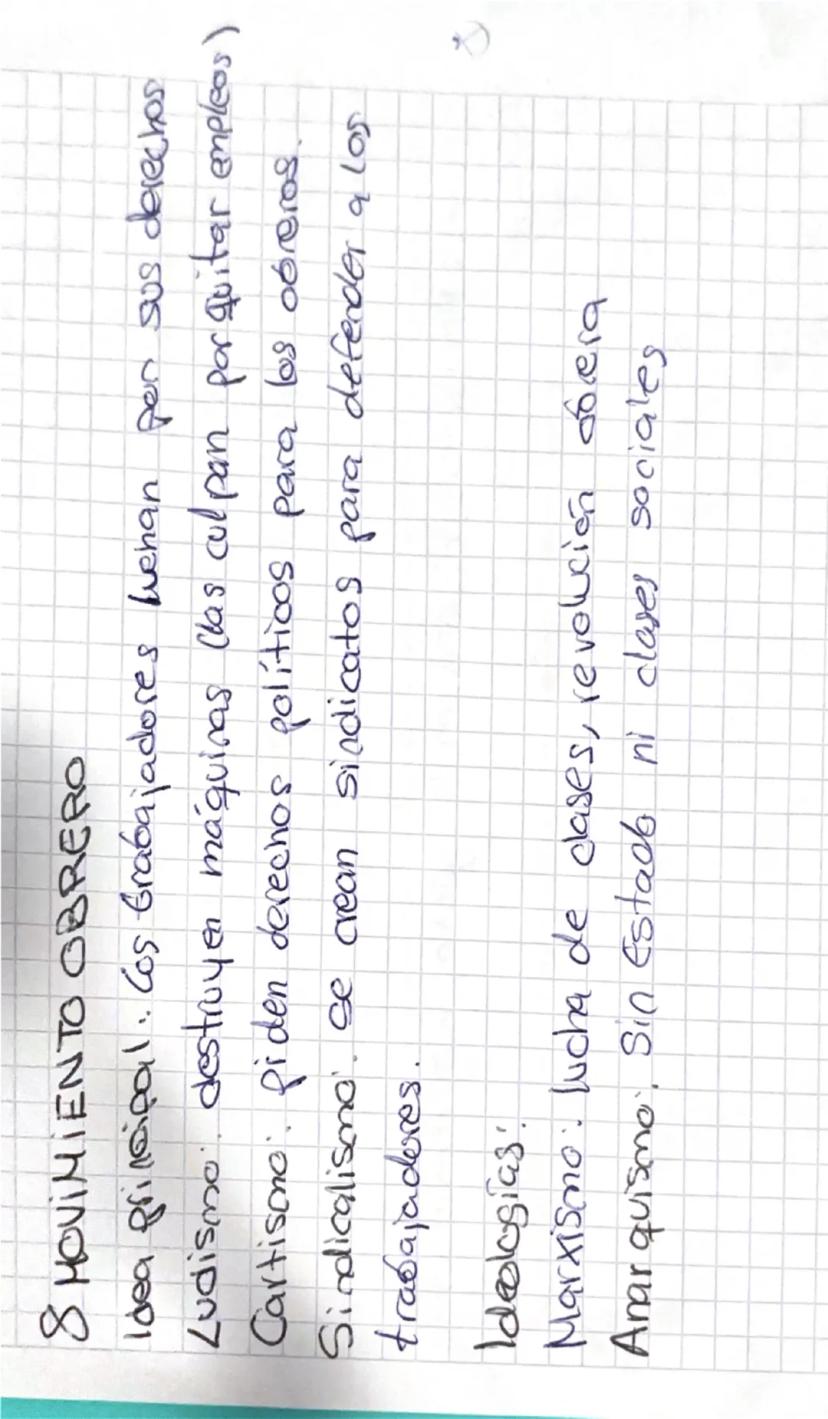 8 MOVIMIENTO OBRERO
Idea principal: Los trabajadores luchan por sus derechos
Ludismo: destruyen máquinas (las culpan por quitar empleos)
Cartismo: piden derechos políticos para los obreros.
Sindicalismo: se crean sindicatos para defender a los
trabajadores.
Ideologías:
Marxismo: lucha de clases, revolución obrera
Anarquismo: Sin Estado ni clases sociales